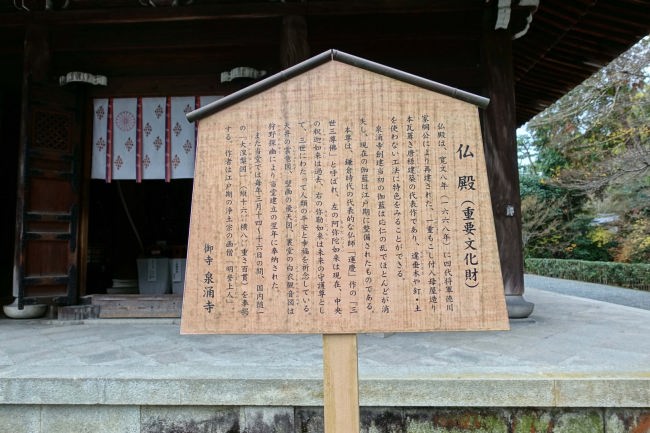 仏殿（重要文化財）
仏殿は、寛文八年（一六六八年）に四代将軍徳川
家綱公により再建された、一重もこし付入母屋造り
本瓦葺き唐様建築の代表作であり、遠垂木や釘・土
を使わない工法に特色をみることができる。
泉涌寺創建当初の伽藍は応仁の乱でほとんどが消
失し、現在の伽藍は江戸期に整備されたものである。
本尊は、鎌倉時代の代表的な仏師「運慶」作の「三
世三尊佛」と呼ばれ、左の阿弥陀如来は現在、中央
の釈迦如来は過去、右の弥勒如来は未来の守護尊とし
て、三世にわたって人類の平安と幸福を祈念している。
天井の雲龍図、壁画の飛天図、裏堂の白衣観音図は
狩野探幽により当堂建立の翌年に奉納された。
また当堂では毎年三月十四〜十六日の間、国内随一
の「大涅槃図」（縦十六㍍横八㍍重さ百貫）を奉懸
する。作者は江戸期の浄土宗の画僧「明誉上人」
御寺 泉涌寺